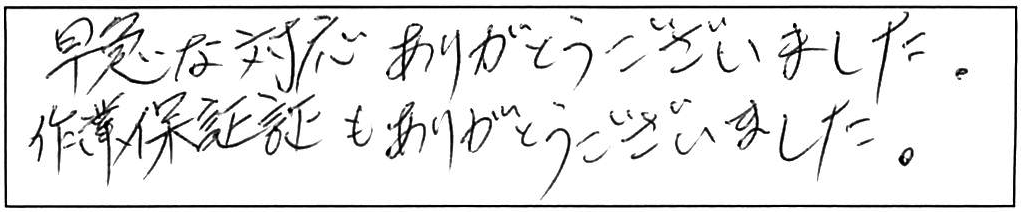 早急な対応ありがとうございました。
作業保証証もありがとうございました。